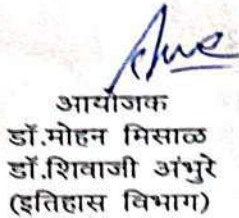 आयोजक
डॉ.मोहन मिसाळ
डॉ.शिवाजी अंभुरे
(इतिहास विभाग)